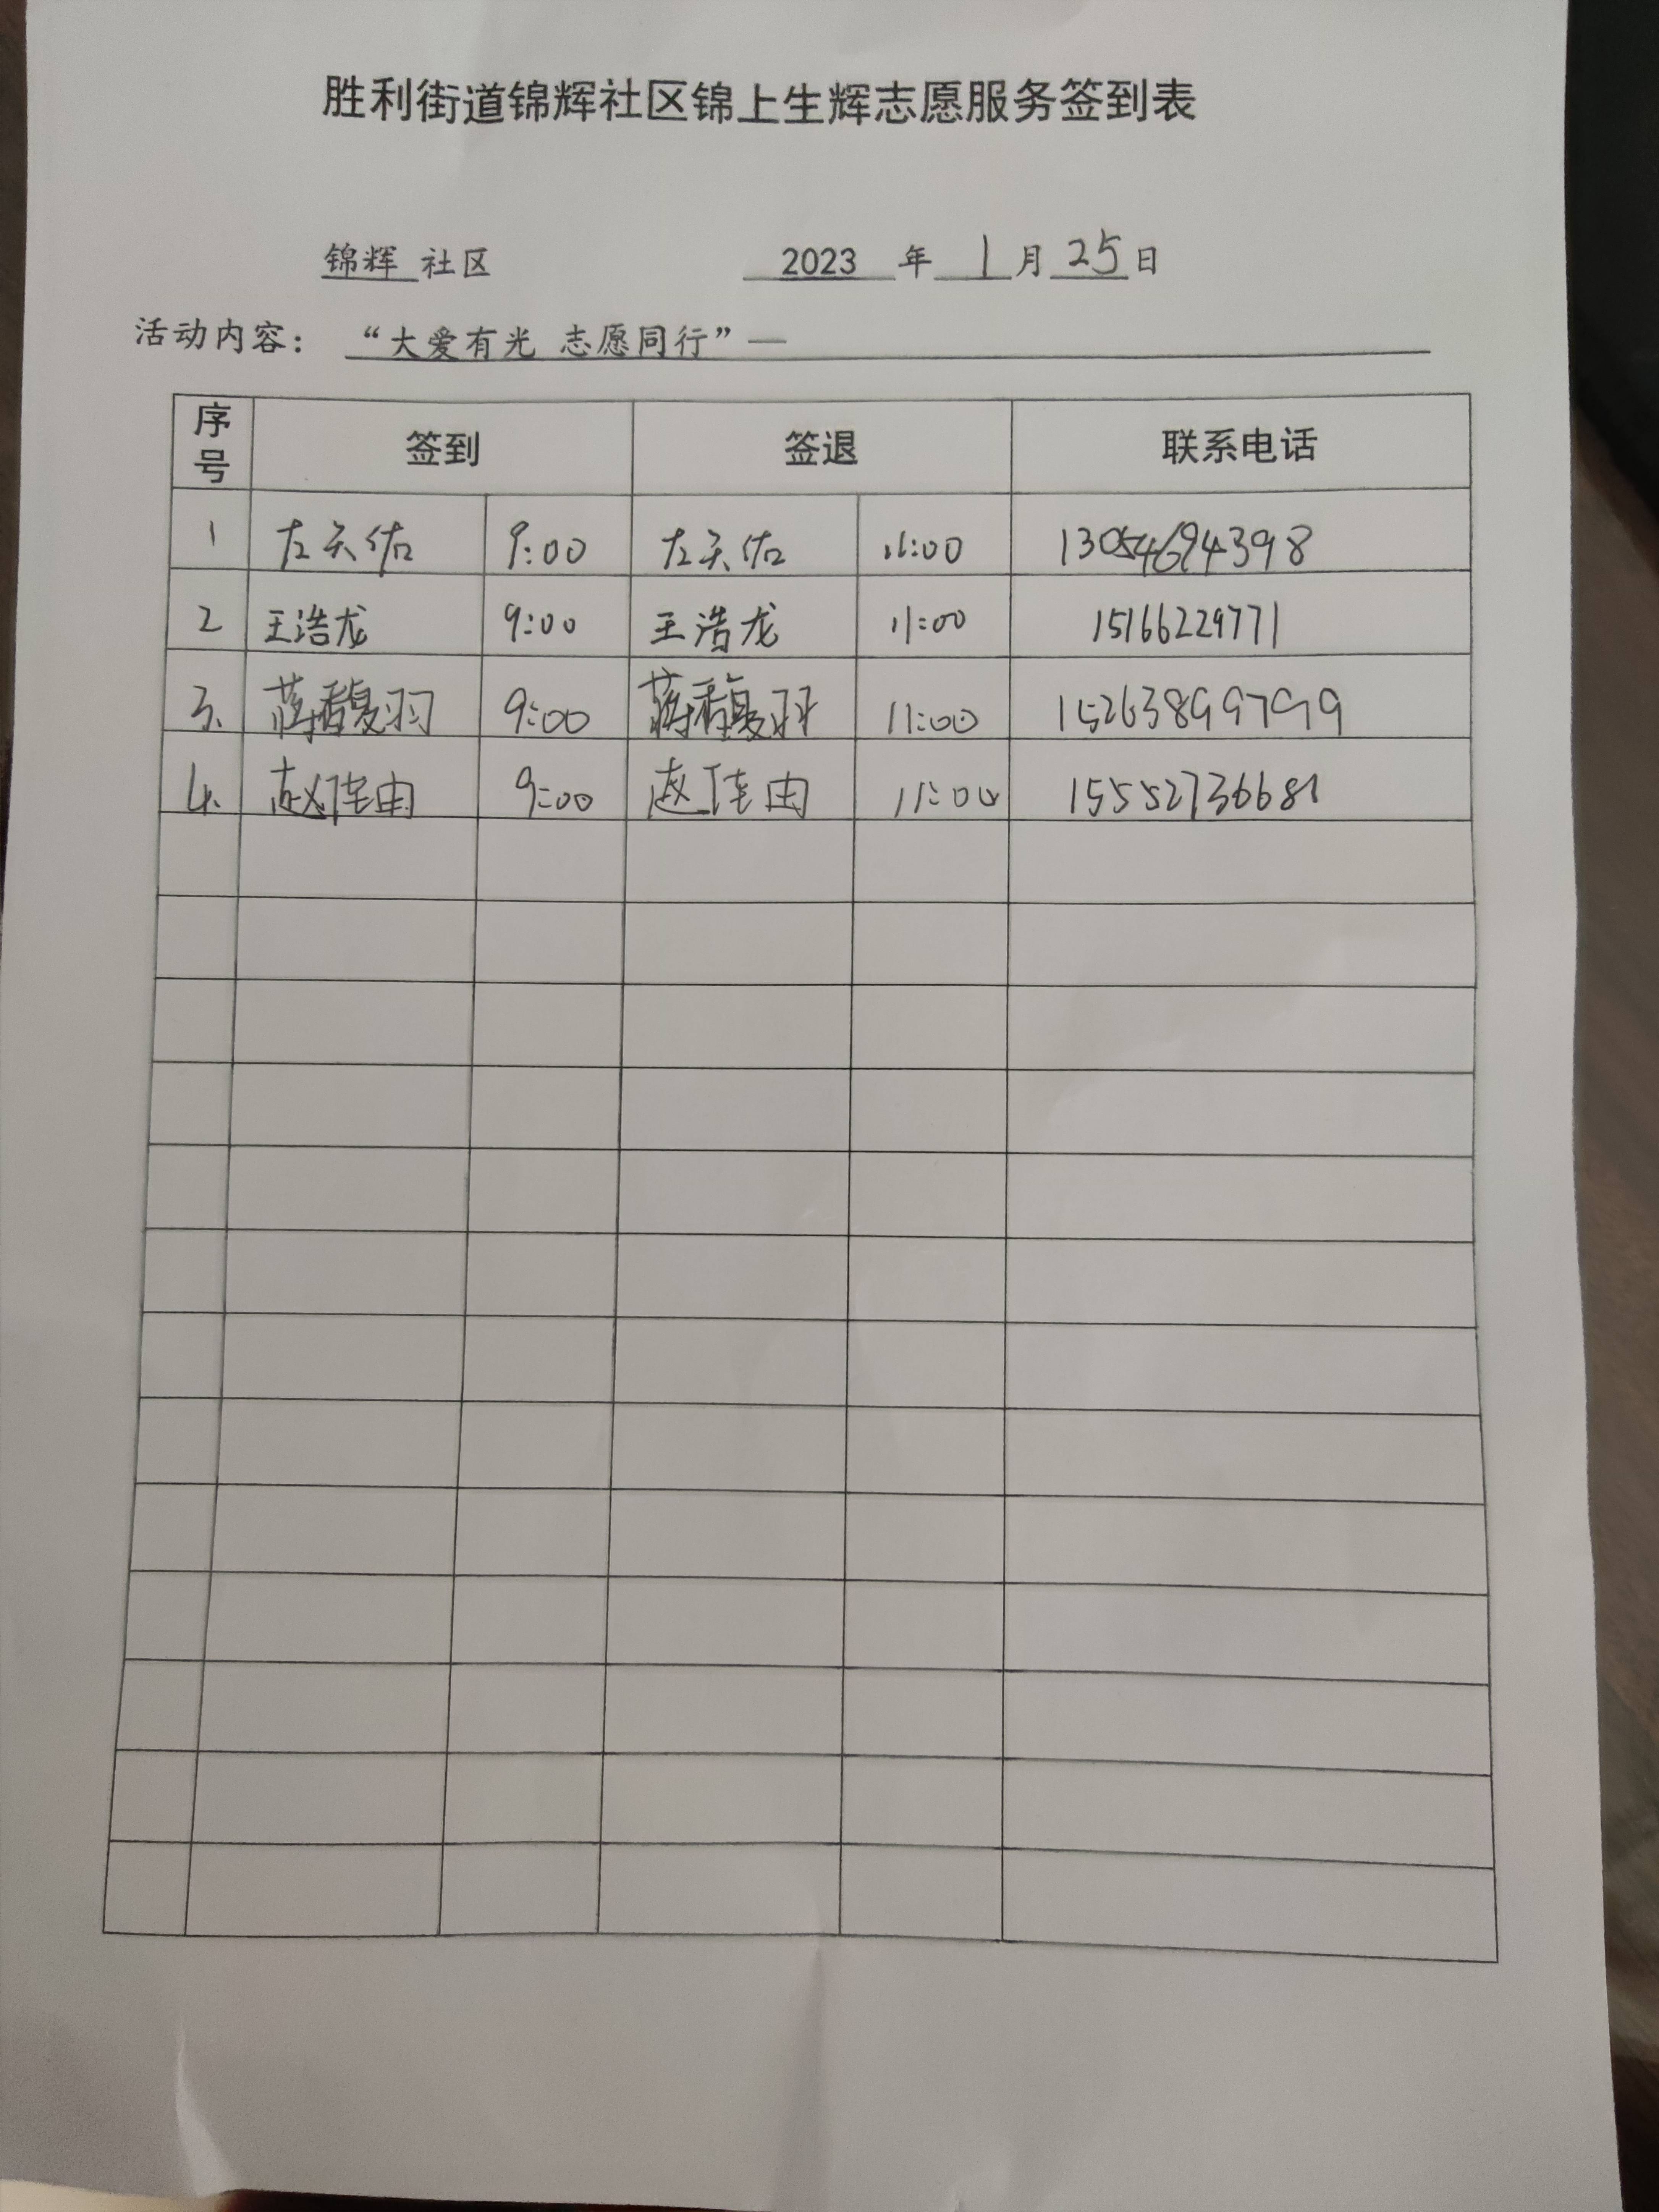 胜利街道锦辉社区锦上生辉志愿服务签到表
锦辉 社区 2023 年 1 月 25 日
活动内容： “大爱有光 志愿同行”—
序号 签到 签退 联系电话
1 左天佑 9:00 左天佑 11:00 13054694398
2 王浩龙 9:00 王浩龙 11:00 15166229771
3. 蒋馥羽 9:00 蒋馥羽 11:00 15263899799
4. 赵佳由 9:00 赵佳由 11:00 15552736681